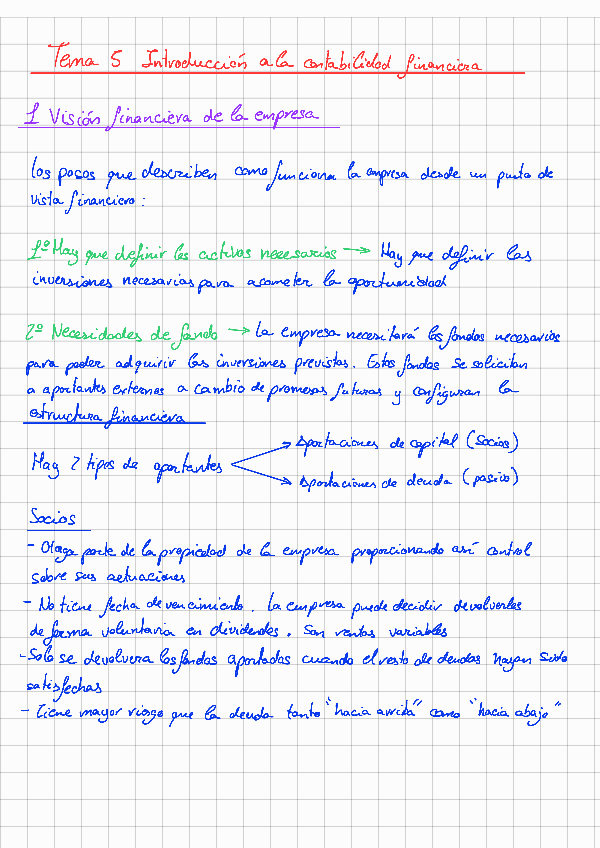 Tema 5 Introducción a la contabilidad financiera
1 Visión financiera de la empresa
Los pasos que describen como funciona la empresa desde un punto de
vista financiero:
1º Hay que definir los activos necesarios → Hay que definir las
inversiones necesarias para acometer la oportunidad
2º Necesidades de fondo → La empresa necesitará los fondos necesarios
para poder adquirir las inversiones previstas. Estos fondos se solicitan
a aportantes externos a cambio de promesas futuras y configuran la
estructura financiera
Aportaciones de capital (Socios)
Hay 2 tipos de aportantes
Aportaciones de deuda (pasivo)
Socios
- Otorga parte de la propiedad de la empresa proporcionando así control
sobre sus actuaciones
- No tiene fecha de vencimiento. La empresa puede decidir devolverlas
de forma voluntaria en dividendos. Son rentas variables
- Solo se devolvera los fondos aportados cuando el resto de deudas hayan sido
satisfechas
- Tiene mayor riesgo que la deuda tanto "hacia arriba" como "hacia abajo"